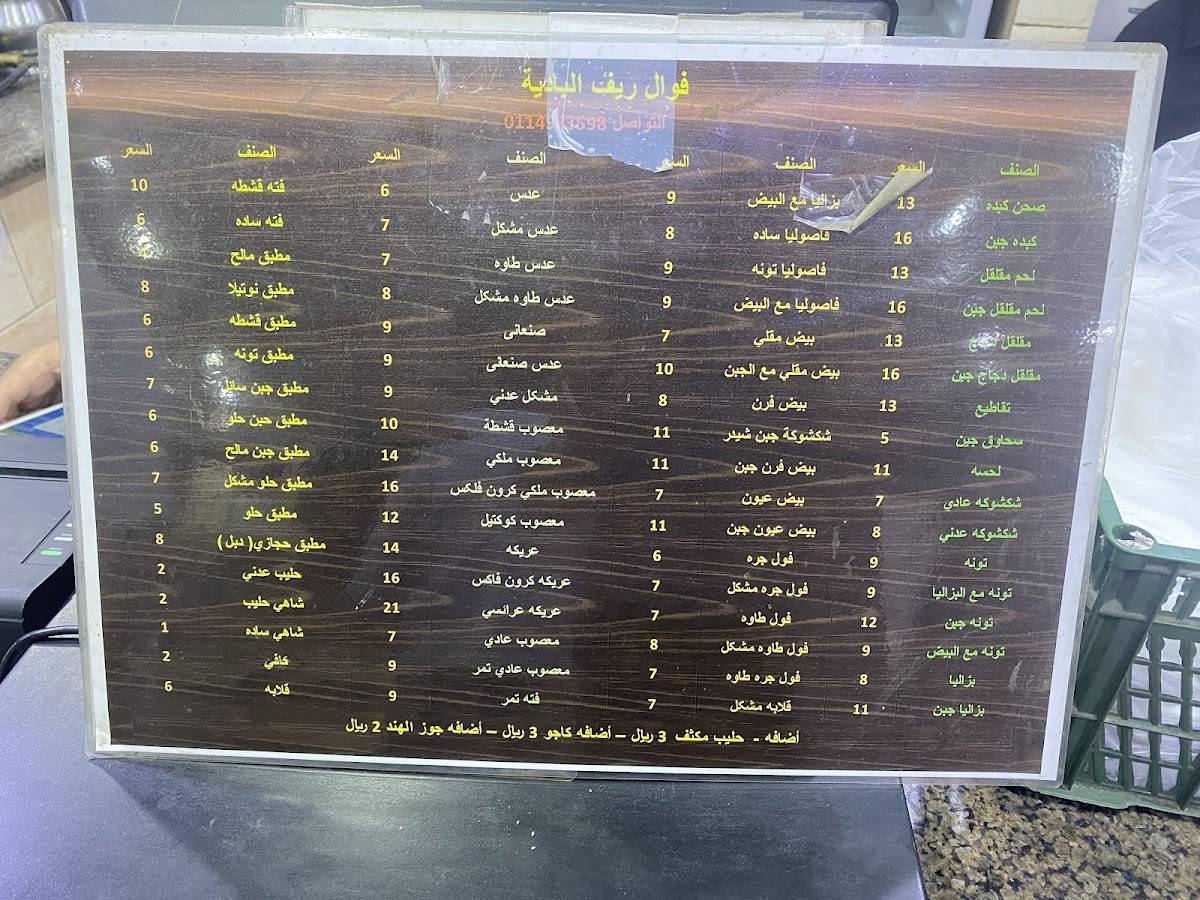 فوال ريف البادية
التواصل
الصنف السعر الصنف السعر الصنف السعر الصنف السعر
صحن كبده 13 بزاليا مع البيض 9 عدس 6 فته قشطه 10
كبده جبن 16 فاصوليا ساده 8 عدس مشكل 7 فته ساده 6
لحم مقلقل 13 فاصوليا تونه 9 عدس طاوه 7 مطبق مالح 4
لحم مقلقل جبن 16 فاصوليا مع البيض 9 عدس طاوه مشكل 8 مطبق نوتيلا 8
مقلقل دجاج 13 بيض مقلي 7 صنعانى 9 مطبق قشطه 6
مقلقل دجاج جبن 16 بيض مقلي مع الجبن 10 عدس صنعانى 9 مطبق تونه 6
تقاطيع 13 بيض فرن 8 مشكل عدني 9 مطبق جبن سائل 7
سحاوق جبن 5 شكشوكة جبن شيدر 11 معصوب قشطة 10 مطبق جبن حلو 6
لحسه 11 بيض فرن جبن 11 معصوب ملكي 14 مطبق جبن مالح 6
شكشوكه عادي 7 بيض عيون 7 معصوب ملكي كرون فلكس 16 مطبق حلو مشكل 7
شكشوكه عدني 8 بيض عيون جبن 11 معصوب كوكتيل 12 مطبق حلو 5
تونه 9 فول جره 6 عريكه 14 مطبق حجازي( دبل ) 8
تونه مع البزاليا 9 فول جره مشكل 7 عريكه كرون فاكس 16 حليب عدني 2
تونه جبن 12 فول طاوه 7 عريكه عرائسي 21 شاهي حليب 2
تونه مع البيض 9 فول طاوه مشكل 8 معصوب عادي 7 شاهي ساده 1
بزاليا 8 فول جره طاوه 7 معصوب عادي تمر 9 كافي 2
بزاليا جبن 11 قلابه مشكل 7 فته تمر 9 قلابه 6
أضافه - حليب مكثف 3 ريال – أضافه كاجو 3 ريال – أضافه جوز الهند 2 ريال